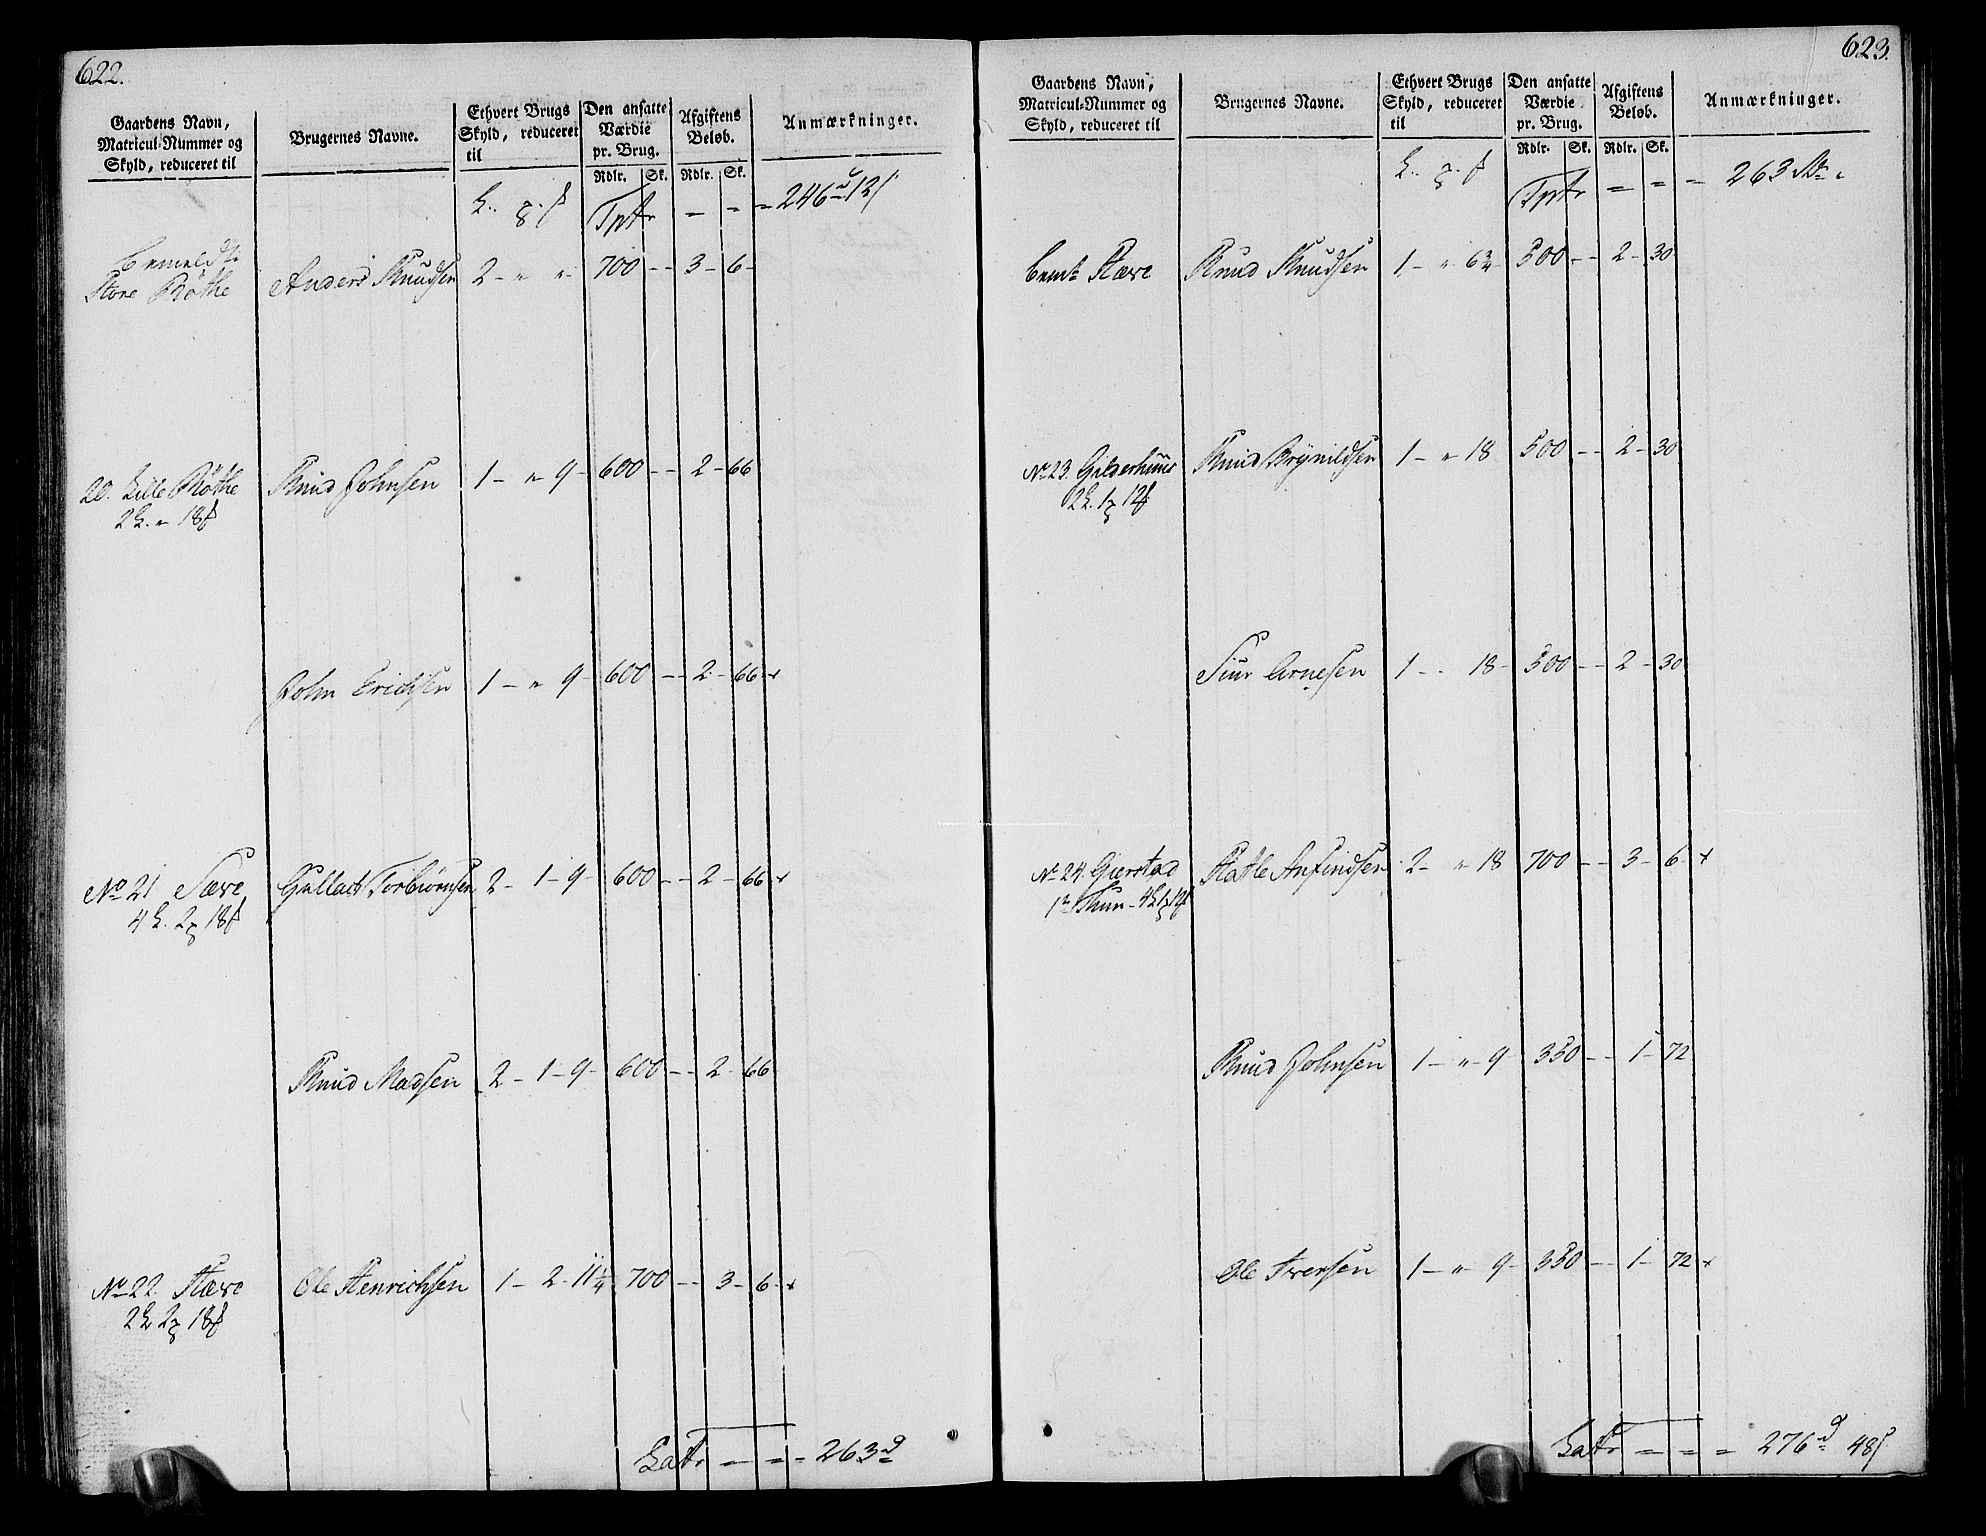 622.
Gaardens Navn, Matricul-Nummer og Skyld, reduceret til
Brugernes Navne.
Ethvert Brugs Skyld, reduceret til
Den ansatte Værdie pr. Brug.
Afgiftens Beløb.
Anmærkninger.
Rdlr. Sk. Rdlr. Sk.
Tptr = = = 246 12
Store Röthe Anders Knudsen 2 - " " - 700 - - 3 - 6 -
20. Lille Röthe Knud Johnsen 1 - " 9 - 600 - - 2 - 66
2 18
John Erichsen 1 - " 9 - 600 - - 2 - 66 +
No 21 Sære Gullach Torbiörnsen 2 - 1 - 9 - 600 - - 2 - 66 +
4 2 18
Knud Madsen 2 - 1 - 9 - 600 - - 2 - 66
No 22. Hære Ole Henrichsen 1 - 2 - 11 1/4 - 700 - - 3 - 6 - +
2 2 18
Latr = = = 263
623.
Gaardens Navn, Matricul-Nummer og Skyld, reduceret til
Brugernes Navne.
Ethvert Brugs Skyld, reduceret til
Den ansatte Værdie pr. Brug.
Afgiftens Beløb.
Anmærkninger.
Rdlr. Sk. Rdlr. Sk.
Tptr = = = 263
Hære Knud Knudsen 1 - " 6 3/4 - 500 - - 2 - 30
No 23. Gilderhuus Knud Brynildsen 1 - " 18 500 - - 2 - 30
2 1 12
Siur Arnesen 1 - - 18 - 500 - - 2 - 30
No 24. Gierstad Hatle Anfindsen 2 - " 18 700 - - 3 - 6 +
4 1 12
Knud Johnsen 1 - " 9 - 350 - - 1 - 72
Ole Iversen 1 - " 9 - 350 - - 1 - 72 +
Latr = = = 276 48